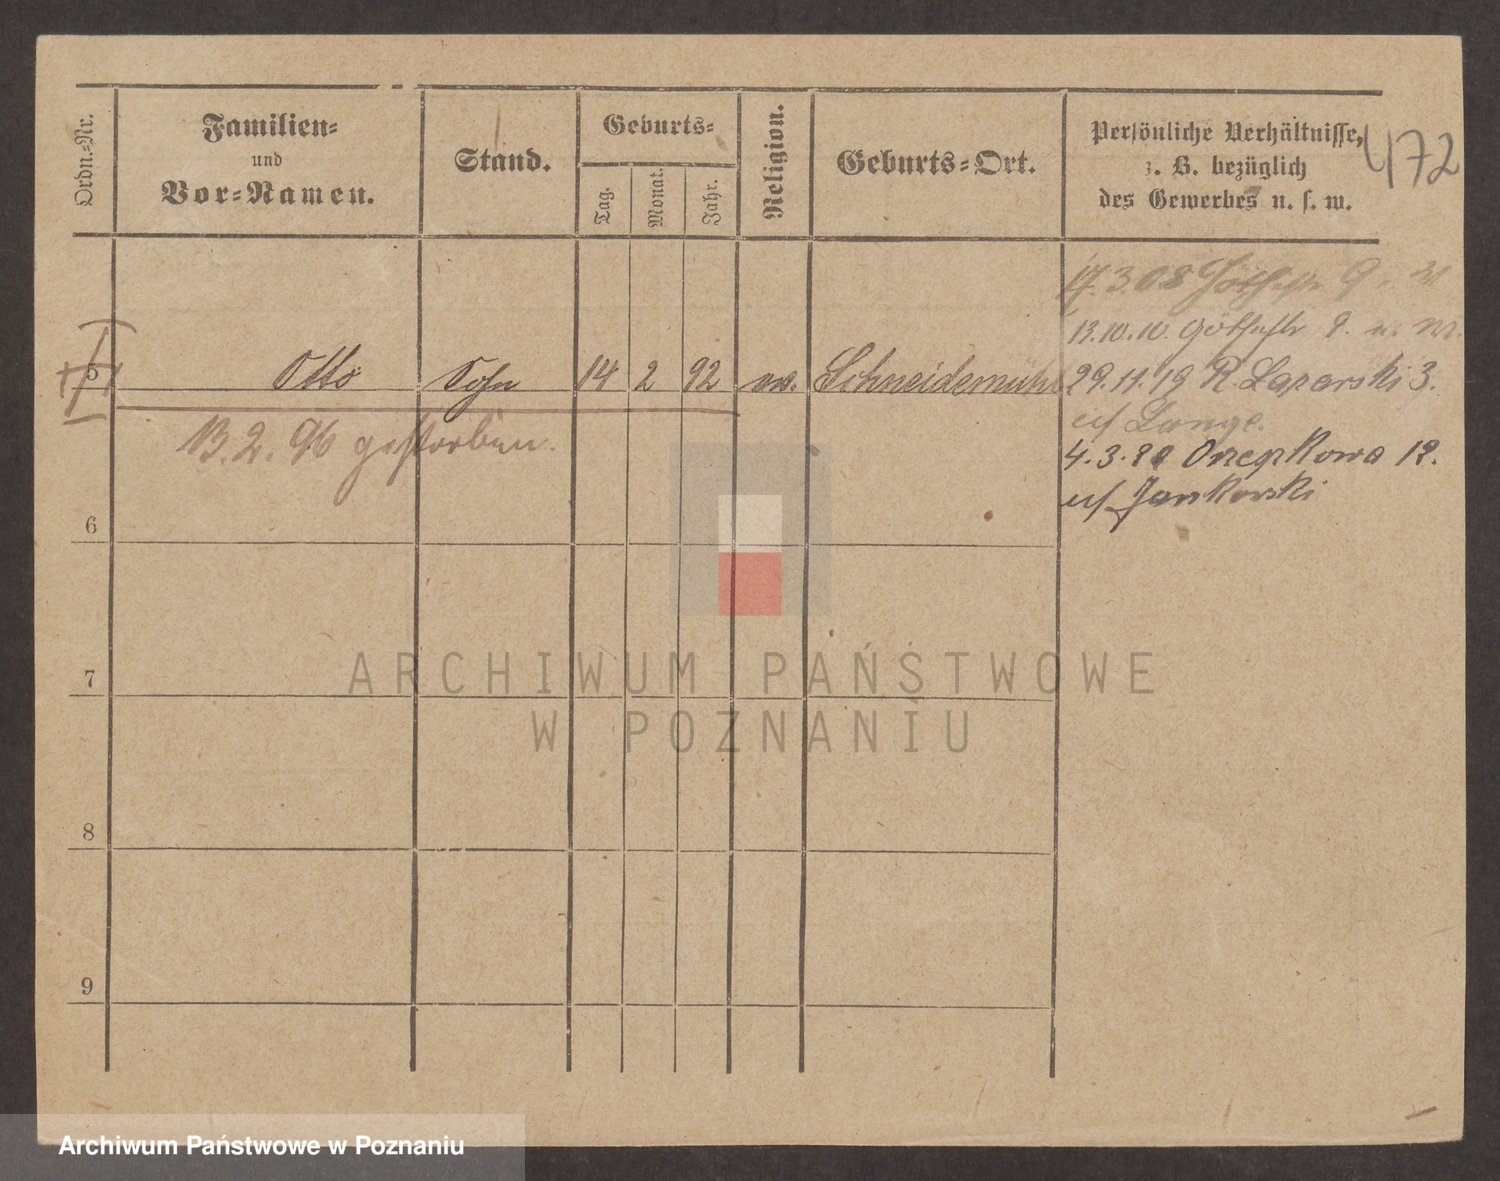 Ordn.-Nr.
Familien-
und
Vor-Namen.
Stand.
Geburts-
Tag.
Monat.
Jahr.
Religion.
Geburts-Ort.
Persönliche Verhältnisse,
z. B. bezüglich
des Gewerbes u. s. w.
472
17.3.08 9.
13.10.10. 9.
5 Otto Sohn 14 2 92 Schneidemühl
29.11.19 R. Lazarski 3.
Lange.
13.2.96 gestorben.
4.3.20 12.
Jankowski
6
7
8
9
ARCHIWUM PAŃSTWOWE
W POZNANIU
Archiwum Państwowe w Poznaniu